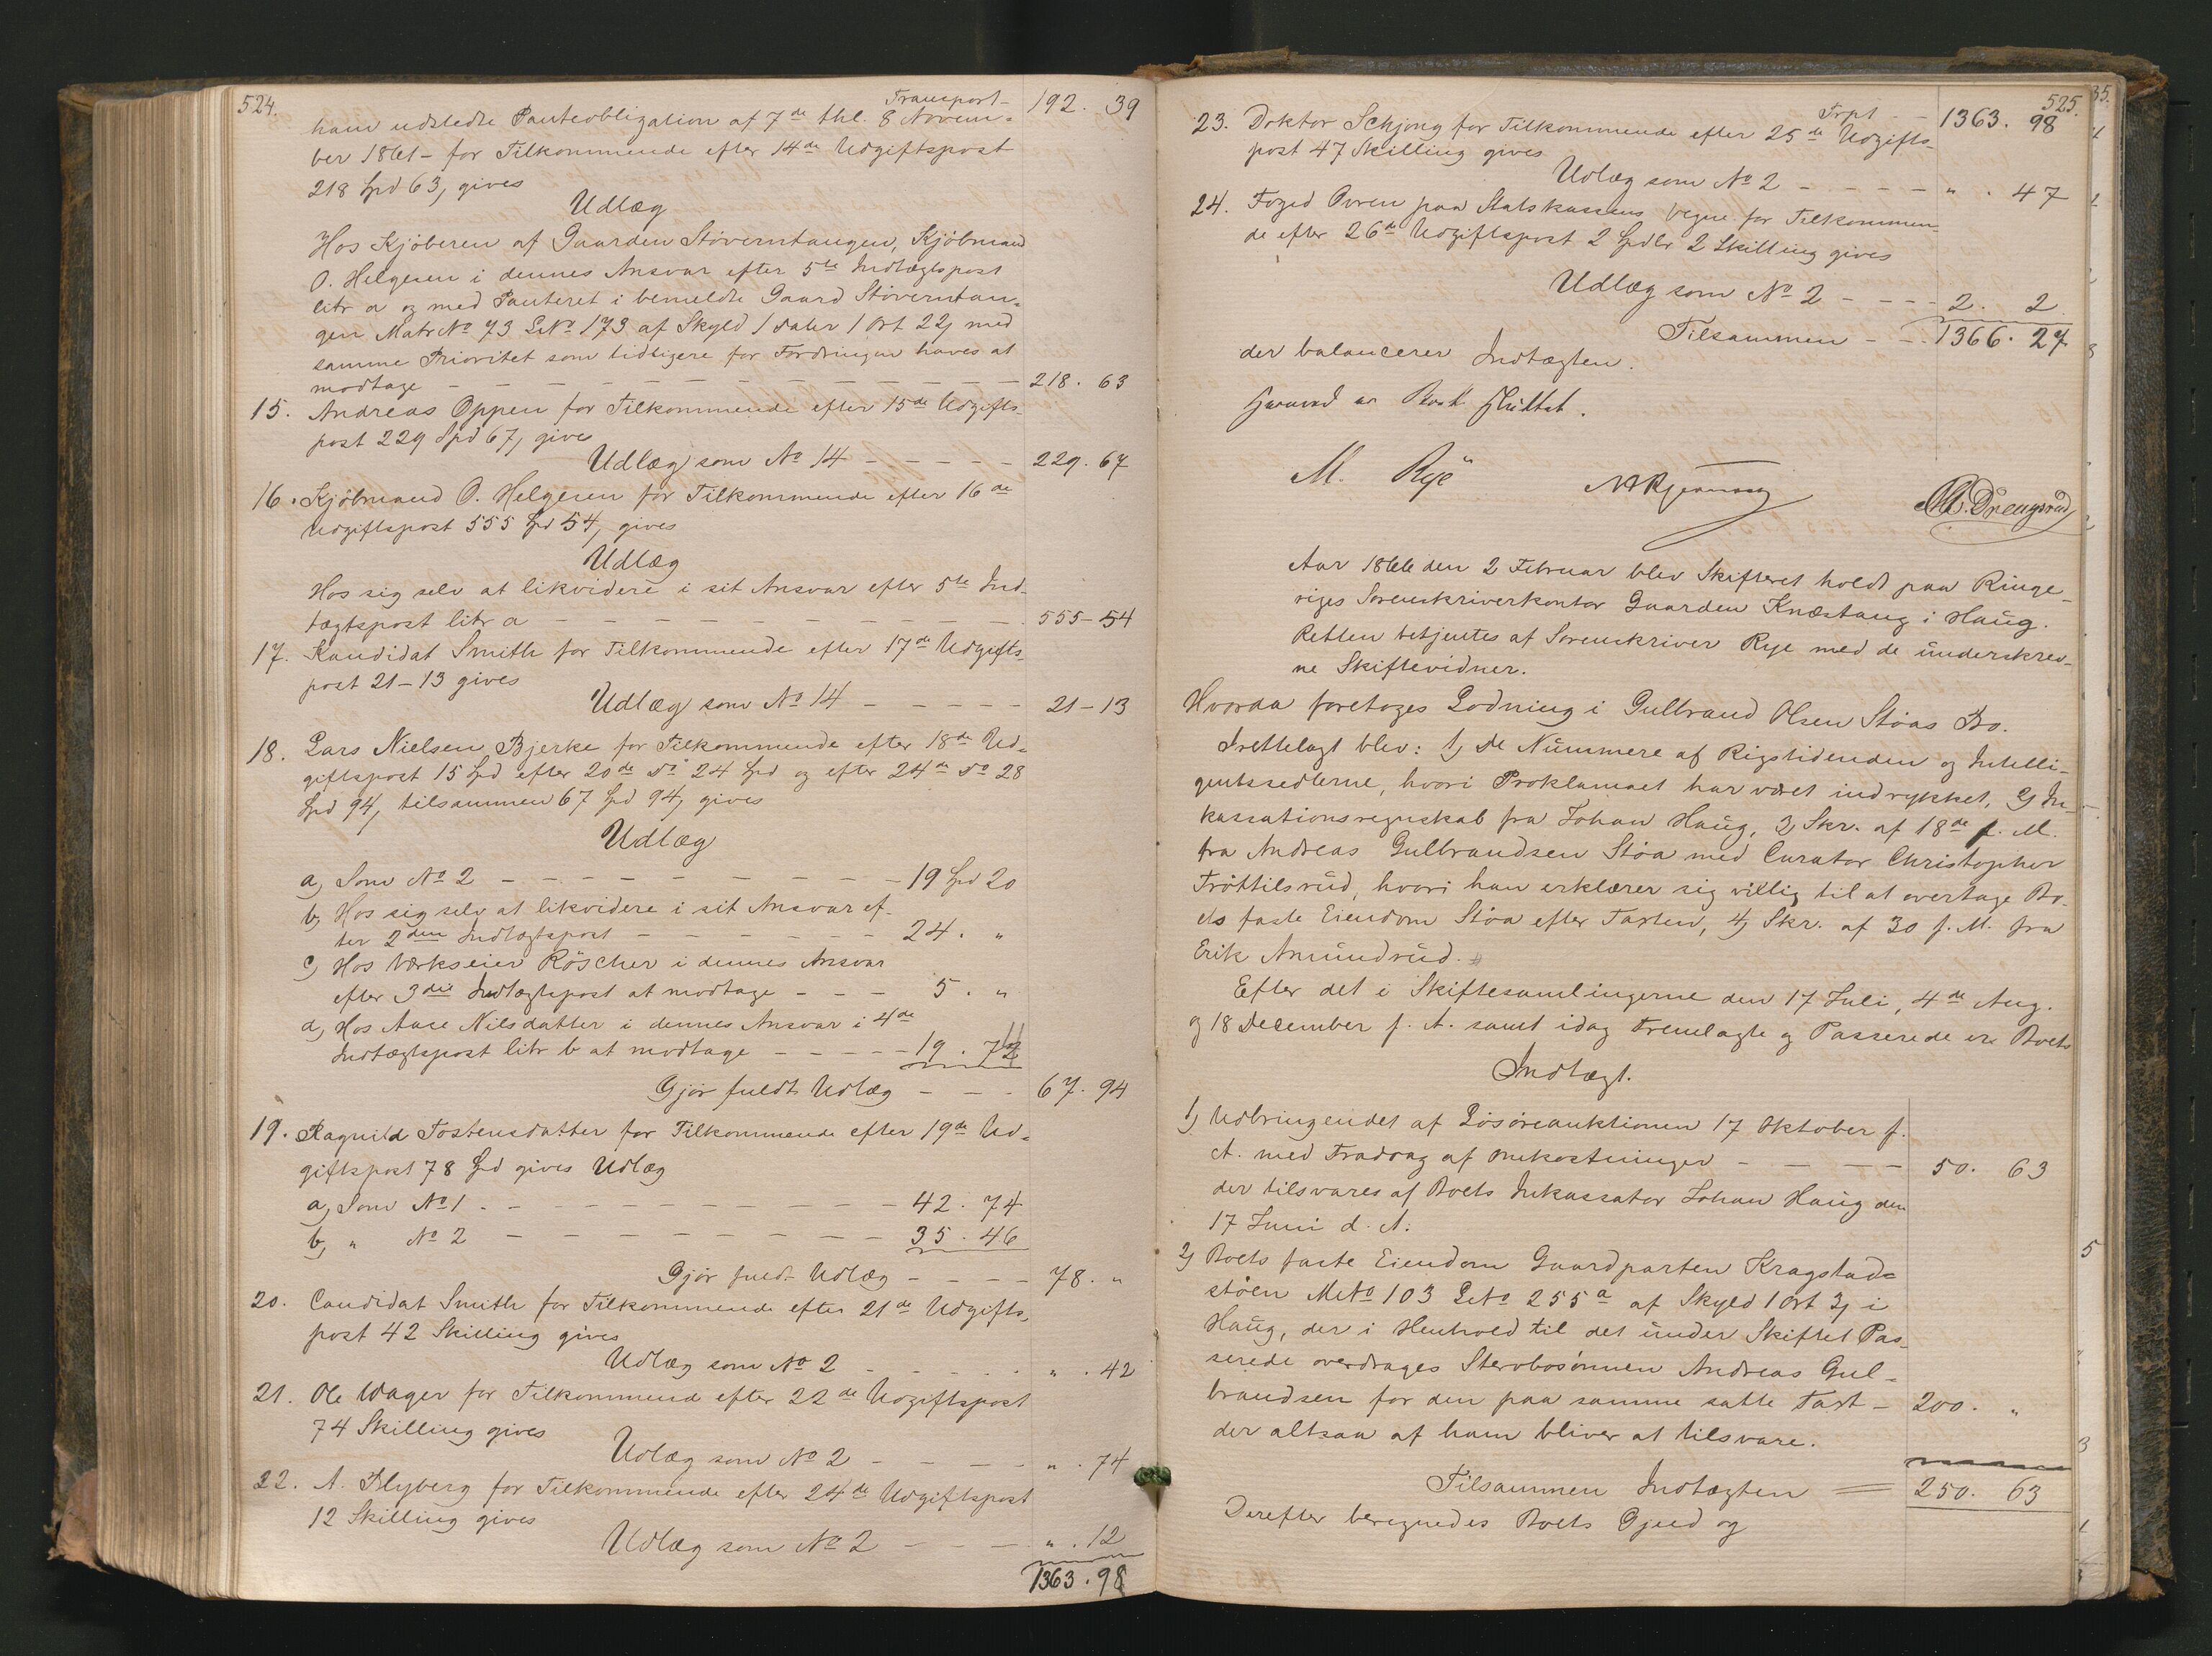 524.
Transport – 192. 39
ham udstedte Panteobligation af 7de thl. 8 Novem-
ber 1861 – for Tilkommende efter 14de Udgiftspost
218 Spd 63, gives
Udlæg
Hos Kjøberen af Gaarden Støverntangen, Kjøbmand
O. Helgesen i dennes Ansvar efter 5te Indtægtspost
litr a og med Panteret i bemeldte Gaard Støverntan-
gen Matr No 73 LNo 173 af Skyld 1 Daler 1 Ort 22, med
samme Prioritet som tidligere for Fordringen haves at
modtage – – – – – – – – – – – – 218. 63
15. Andreas Oppen for Tilkommende efter 15de Udgifts-
post 229 Spd 67, gives
Udlæg som No 14 – – – – – 229. 67
16. Kjøbmand O. Helgesen for Tilkommende efter 16de
Udgiftspost 555 Spd 54, gives
Udlæg
Hos sig selv at likvidere i sit Ansvar efter 5te Ind-
tægtspost litr a – – – – – – – – – – 555 – 54
17. Kandidat Smith for Tilkommende efter 17de Udgifts-
post 21 – 13 gives
Udlæg som No 14 – – – – – 21 – 13
18. Lars Nielsen Bjerke for Tilkommende efter 18de Ud-
giftspost 15 Spd efter 20de Do 24 Spd og efter 24de Do 28
Spd 94, tilsammen 67 Spd 94, gives
Udlæg
a, Som No 2 – – – – – – – – 19 Spd 20
b, Hos sig selv at likvidere i sit Ansvar ef-
ter 2den Indtægtspost – – – – – – 24. "
c, Hos Værkseier Röscher i dennes Ansvar
efter 3die Indtægtspost at modtage – – – 5. "
d, Hos Aase Nilsdatter i dennes Ansvar i 4de
Indtægtspost litr b at modtage – – – – – 19. 74
Gjør fuldt Udlæg – – – 67. 94
19. Ragnild Tostensdatter for Tilkommende efter 19de Ud-
giftspost 78 Spd gives Udlæg
a, Som No 1 – – – – – – – – – 42. 74
b, " No 2 – – – – – – – – 35. 46
Gjør fuldt Udlæg – – – – 78. "
20. Candidat Smith for Tilkommende efter 21de Udgifts-
post 42 Skilling gives
Udlæg som No 2 – – – – " . 42
21. Ole Wager for Tilkommend efter 22de Udgiftspost
74 Skilling gives
Udlæg som No 2 – – – – " . 74
22. A. Blyberg for Tilkommende efter 24de Udgiftspost
12 Skilling gives
Udlæg som No 2 – – – – " . 12
1363. 98
525.
Trpt – – 1363. 98
23. Doktor Schjong for Tilkommende efter 25de Udgifts-
post 47 Skilling gives
Udlæg som No 2 – – – – – " . 47
24. Foged Ovren paa Statskassens Vegne for Tilkommen-
de efter 26de Udgiftspost 2 Spdlr 2 Skilling gives
Udlæg som No 2 – – – – 2. 2
Tilsammen – – 1366. 27
der balancerer Indtægten.
Hermed er Boet sluttet.
M. Rye
Aar 1866 den 2 Februar blev Skifteret holdt paa Ringe-
riges Sorenskriverkontor Gaarden Knæstang i Haug.
Retten betjentes af Sorenskriver Rye med de underskrev-
ne Skiftevidner.
Hvorda foretoges Lodning i Gulbrand Olsen Støas Bo.
Irettelagt blev: 1, De Nummere af Rigstidenden og Intelli-
gentssedlerne, hvori Proklamaet har været indrykket, 2, In-
kassationsregnskab fra Johan Haug, 3, Skr. af 18de f. M.
fra Andreas Gulbrandsen Støa med Curator Christopher
Trøttilsrud, hvori han erklærer sig villig til at overtage Bo-
ets faste Eiendom Støa efter Taxten, 4, Skr. af 30 f. M. fra
Erik Amundrud.
Efter det i Skiftesamlingerne den 17 Juli, 4de Aug.
og 18 December f. A. samt idag Fremlagte og Passerede er Boets
Indtægt.
1, Udbringendet af Løsøreauktionen 17 Oktober f.
A. med Fradrag af Omkostninger – – – – – 50. 63
der tilsvares af Boets Inkassator Johan Haug den
17 Juni d. A.
2, Boets faste Eiendom Gaardparten Kragstad-
støen MNo 103 LNo 255a af Skyld 1 Ort 3, i
Haug, der i Henhold til det under Skiftet Pas-
serede overdrages Stervbosønnen Andreas Gul-
brandsen for den paa samme satte Taxt – 200. "
der altsaa af ham bliver at tilsvare.
Tilsammen Indtægten = 250. 63
Derefter beregnedes Boets Gjæld og